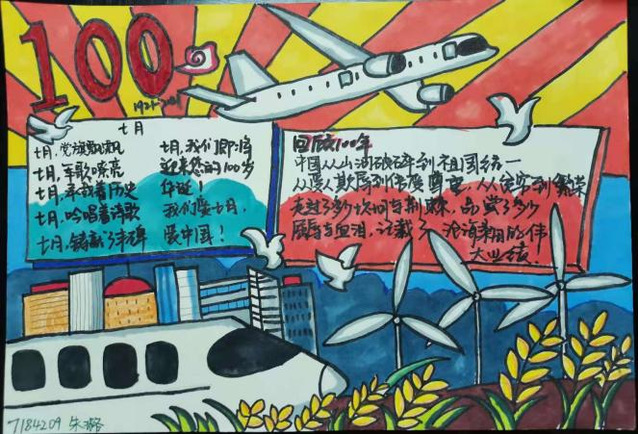 100
1921-2021
七月
七月,党旗飘飘
七月,军歌嘹亮
七月,承载着历史
七月,吟唱着诗歌
七月,铸就了丰碑
七月,我们即将
迎来您的100岁
华诞!
我们爱七月,
爱中国!
回顾100年
中国从山河破碎到祖国统一
从受人欺辱到倍受尊重,从贫穷到繁荣
走过了多少坎坷与荆棘,品尝了多少
屈辱与血泪,记载了沧海桑田的伟
大业绩!
7184209 朱璐